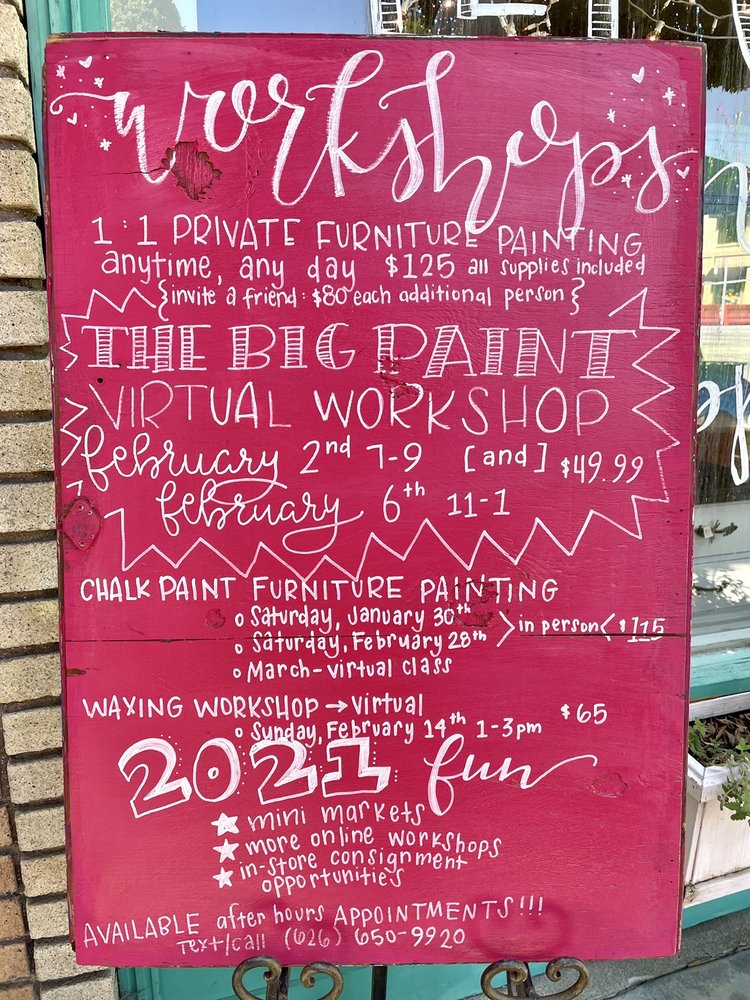 workshops
1:1 PRIVATE FURNITURE PAINTING
anytime, any day $125 all supplies included
{invite a friend: $80 each additional person}
THE BIG PAINT
VIRTUAL WORKSHOP
february 2nd 7-9 [and] $49.99
february 6th 11-1
CHALK PAINT FURNITURE PAINTING
o Saturday, January 30th
o Saturday, February 28th > in person < $115
o March-virtual class
WAXING WORKSHOP → virtual $65
o Sunday, February 14th 1-3pm
2021 fun
★ mini markets
★ more online workshops
★ in-store consignment
opportunities
AVAILABLE after hours APPOINTMENTS!!!
Text/call (626) 650-9920